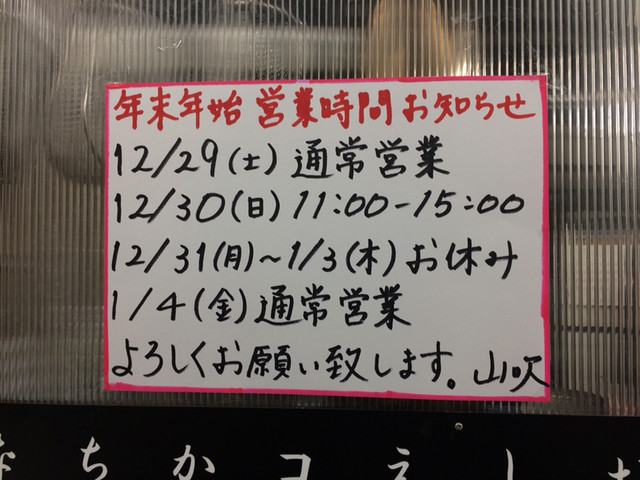 年末年始 営業時間 お知らせ
12/29(土) 通常営業
12/30(日) 11:00-15:00
12/31(月)~1/3(木) お休み
1/4(金) 通常営業
よろしくお願い致します。山吹
ちかコえし